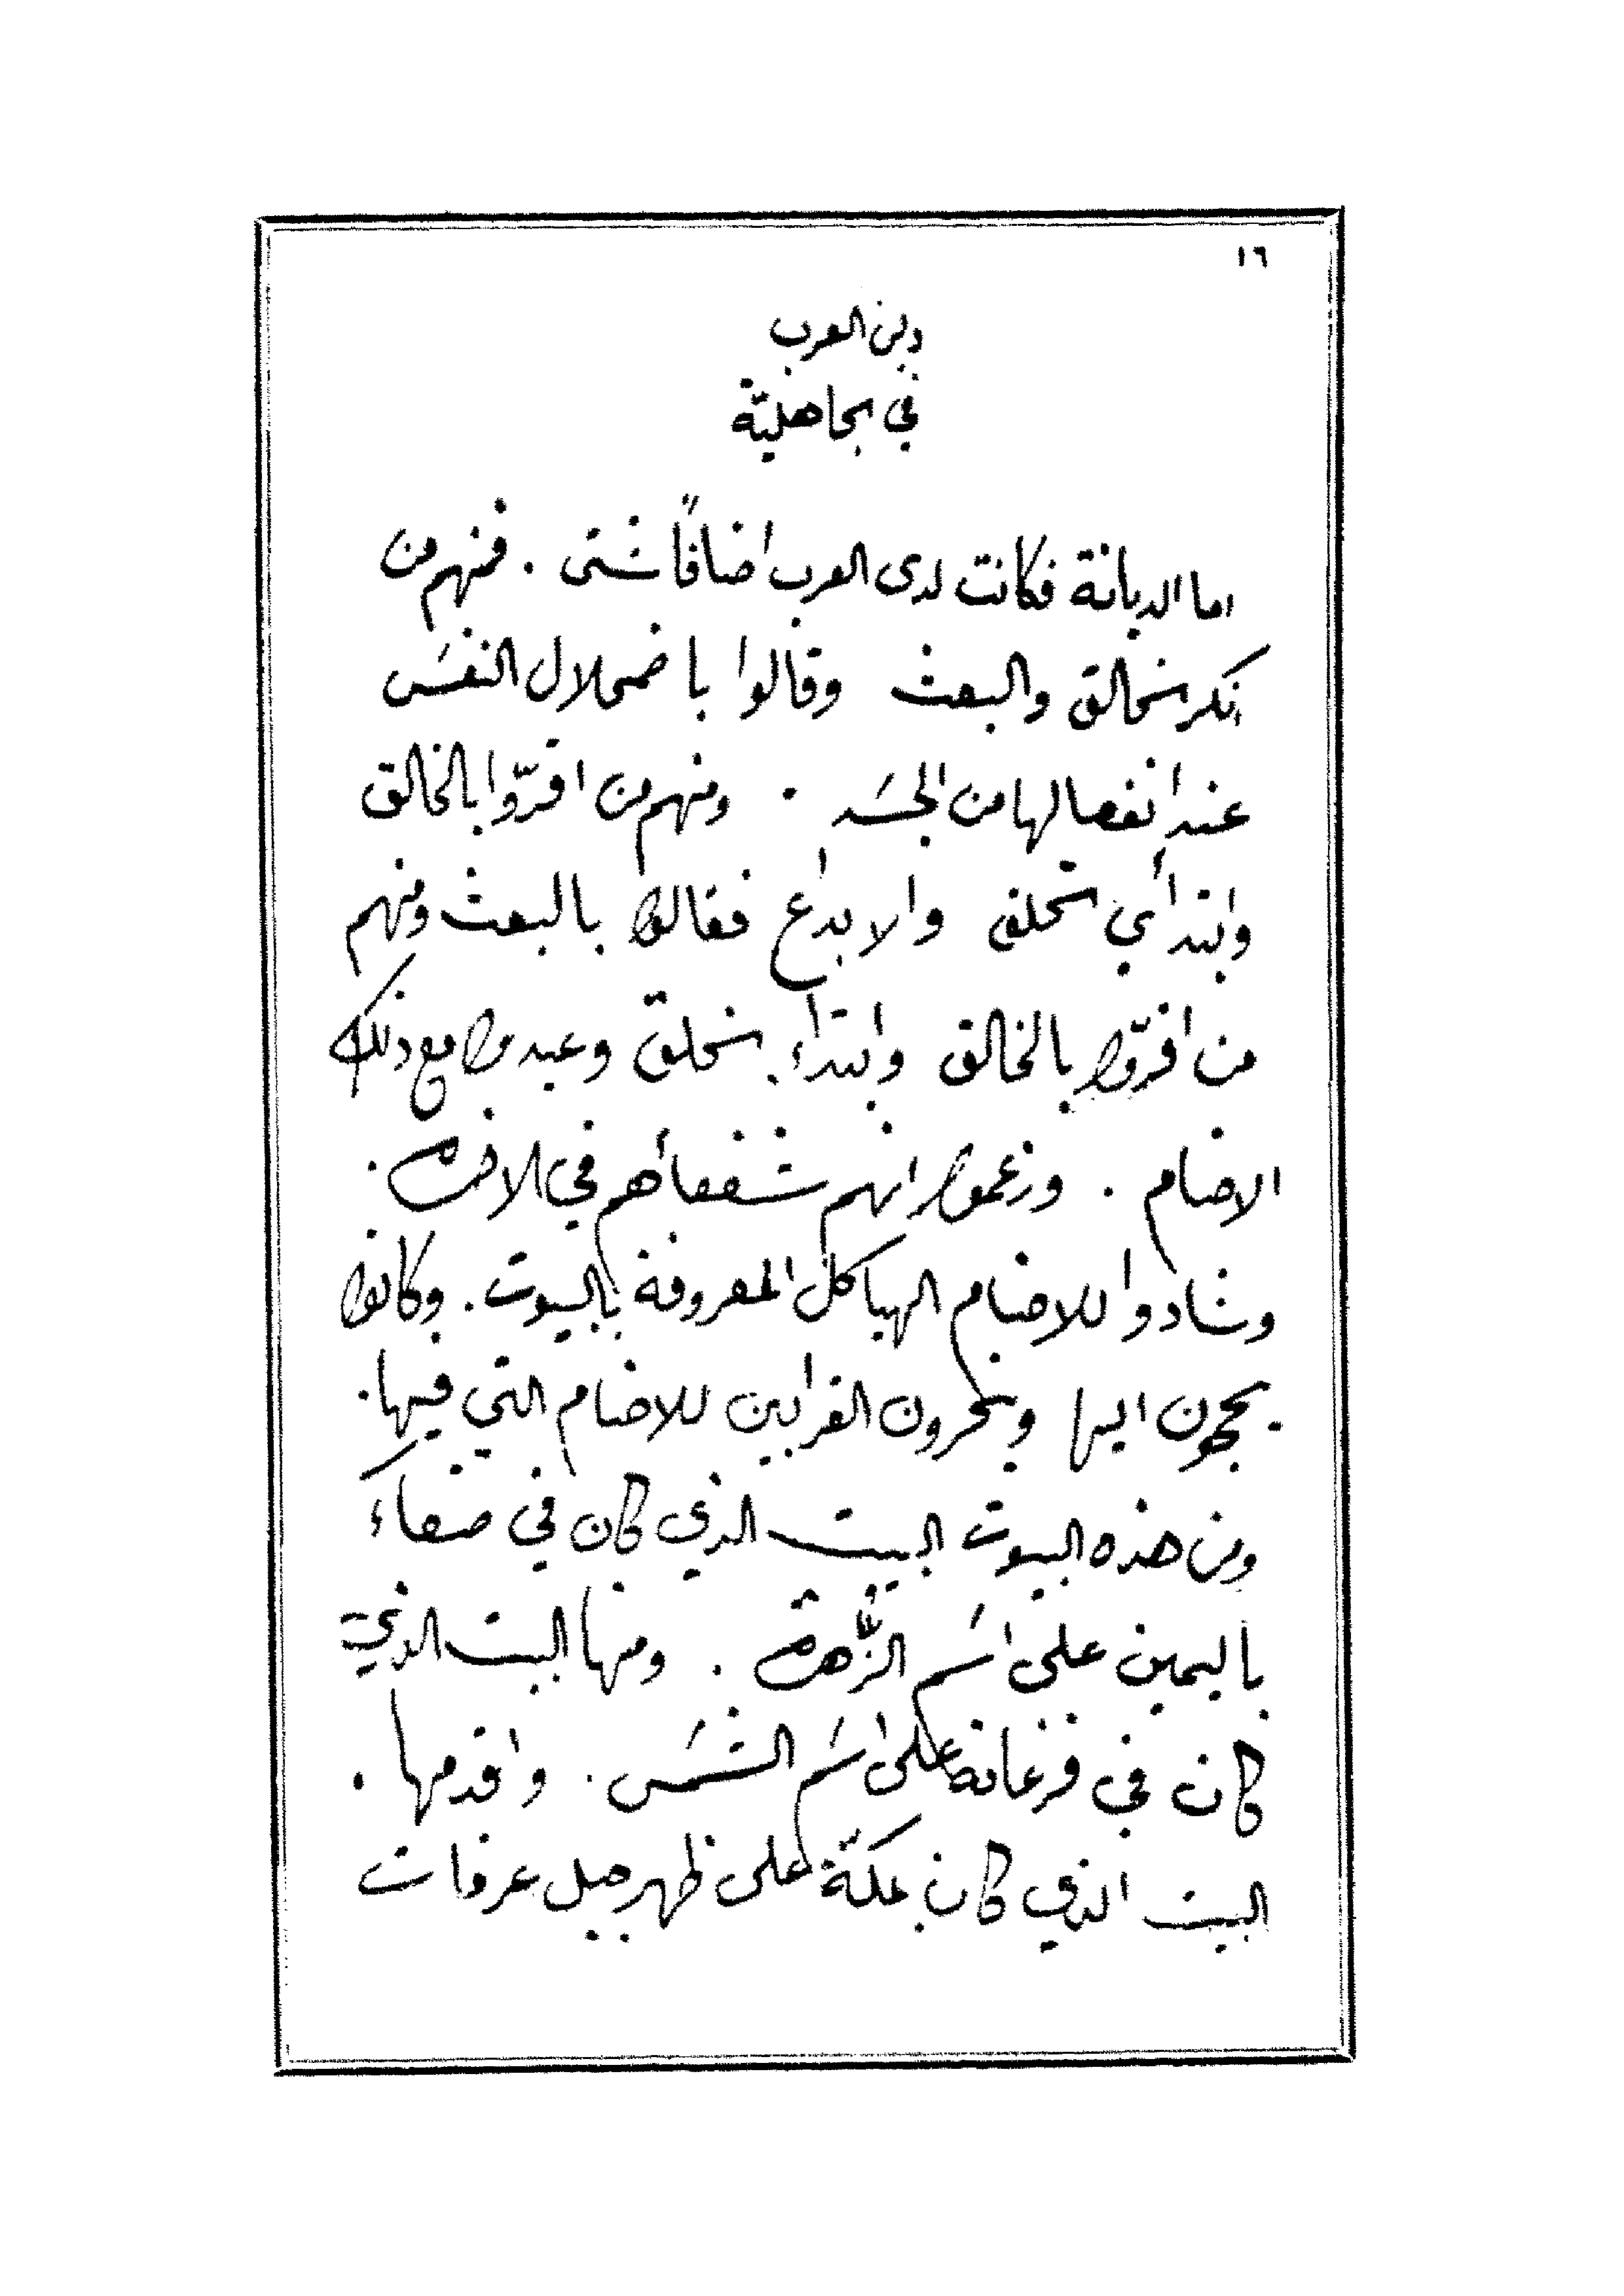 ١٦
دين العرب
في الجاهليّة
اما الديانة فكانت لدى العرب اصنافًا شتى . فمنهم من
انكر الخالق والبعث وقالوا باضمحلال النفس
عند انفصالها من الجسَد . ومنهم من اقرّوا بالخالق
وابتدأي الخلق والابداع فقالوا بالبعث ومنهم
من اقرّوا بالخالق وابتداء الخلق وعبدوا مع ذلك
الاصنام . وزعموا انهم شفعاءهم في الاخرة .
وشادوا للاصنام الهياكل المعروفة بالبيوت . وكانوا
يحجون اليها وينحرون القرابين للاصنام التي فيها .
ومن هذه البيوت البيت الذي كان في صنعاءَ
باليمين على اسَم الزُّهرة . ومنها البيت الذي
كان في فرغانة على اسَم الشمَس . واقدمها .
البيت الذي كان بمكّة على ظهر جبل عرفات